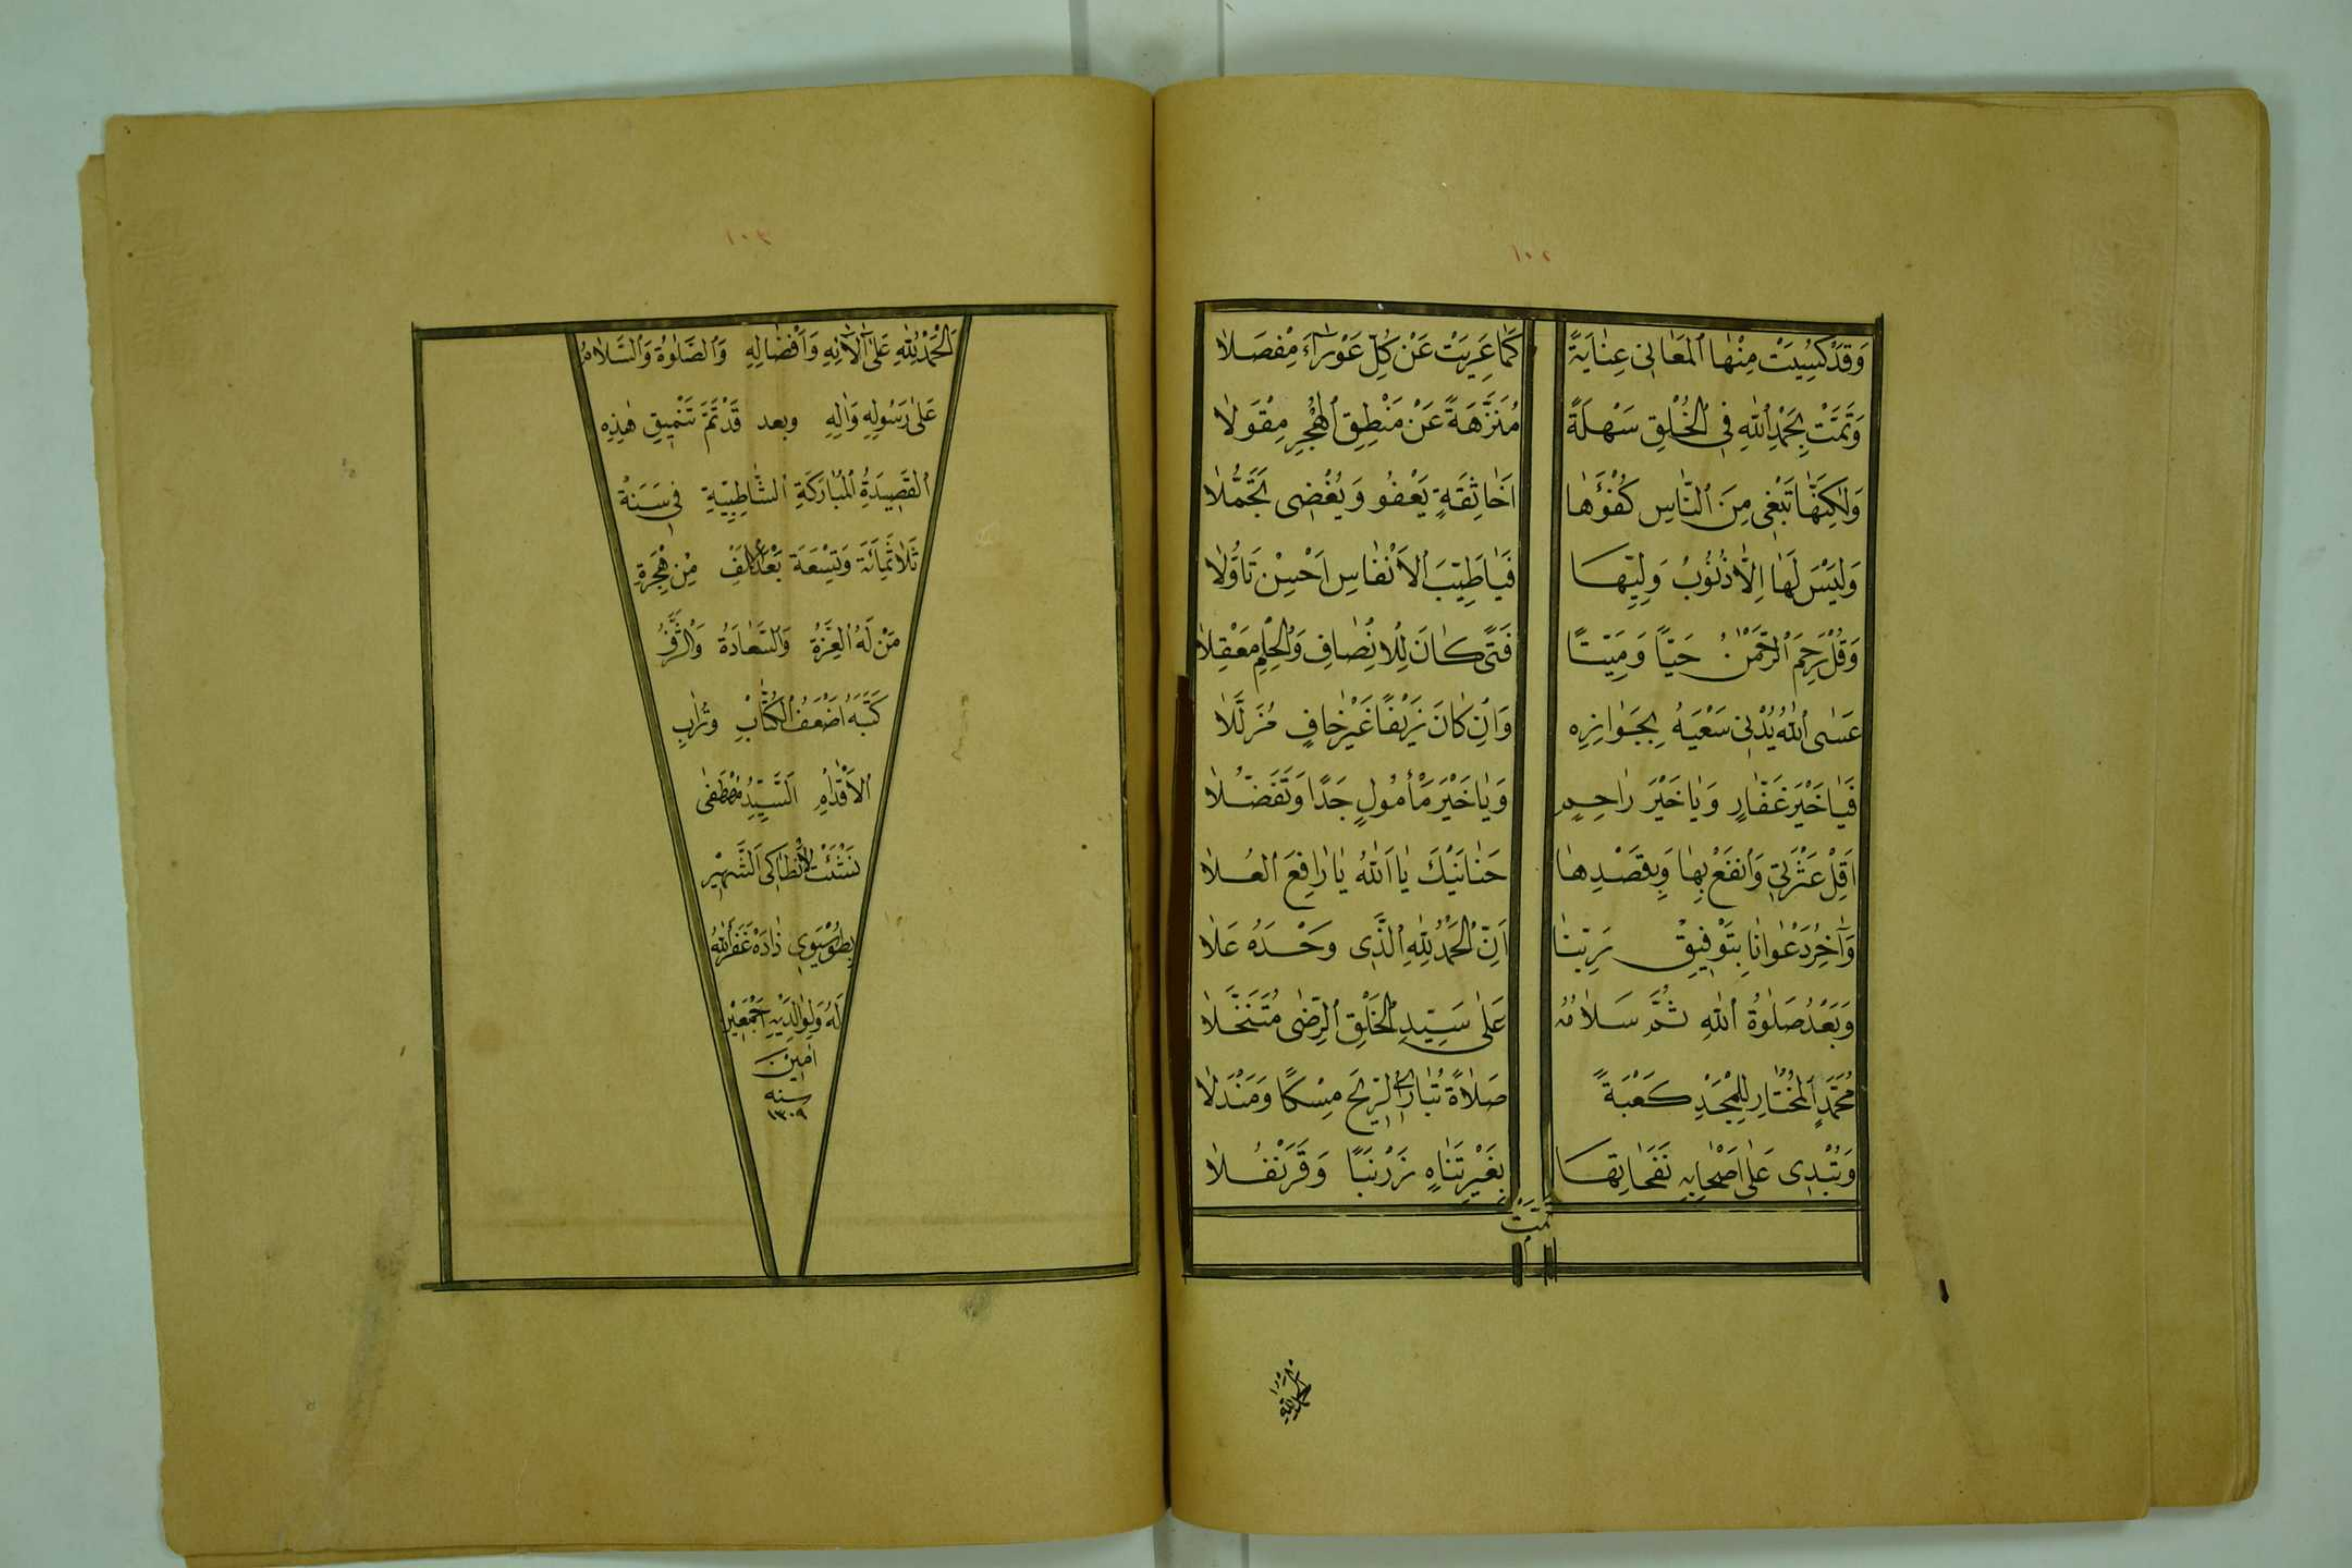 ١٠٢
وَقَدْ كُسِيَتْ مِنْهَا الْمَعَانِى عِنَايَةً كَمَا عَرِيَتْ عَنْ كُلِّ عَوْرَاءَ مِفْصَلَا
وَتَمَّتْ بِحَمْدِ اللّٰهِ فِى الْخُلْقِ سَهْلَةً مُنَزَّهَةً عَنْ مَنْطِقِ الْهُجْرِ مِقْوَلَا
وَلٰكِنَّهَا تَبْغِى مِنَ النَّاسِ كُفْؤَهَا اَخَا ثِقَةٍ يَعْفُو وَيُغْضِى تَجَمُّلَا
وَلَيْسَ لَهَا اِلَّا ذُنُوبُ وَلِيِّهَا فَيَا طَيِّبَ الْاَنْفَاسِ اَحْسِنْ تَاَوُّلَا
وَقُلْ رَحِمَ الرَّحْمٰنُ حَيًّا وَمَيِّتًا فَتًى كَانَ لِلْاِنْصَافِ وَالْحِلْمِ مَعْقِلَا
عَسَى اللّٰهُ يُدْنِى سَعْيَهُ بِجَوَازِهِ وَاِنْ كَانَ زَيْفًا غَيْرَ خَافٍ مُزَلَّلَا
فَيَا خَيْرَ غَفَّارٍ وَيَا خَيْرَ رَاحِمٍ وَيَا خَيْرَ مَأْمُولٍ جَدًا وَتَفَضُّلَا
اَقِلْ عَثْرَتِى وَانْفَعْ بِهَا وَبِقَصْدِهَا حَنَانَيْكَ يَا اَللّٰهُ يَا رَافِعَ الْعُلَا
وَاٰخِرُ دَعْوَانَا بِتَوْفِيقِ رَبِّنَا اَنِ الْحَمْدُ لِلّٰهِ الَّذِى وَحْدَهُ عَلَا
وَبَعْدُ صَلٰوةُ اللّٰهِ ثُمَّ سَلَامُهُ عَلٰى سَيِّدِ الْخَلْقِ الرِّضٰى مُتَنَخَّلَا
مُحَمَّدٍ الْمُخْتَارِ لِلْمَجْدِ كَعْبَةً صَلَاةً تُبَارِى الرِّيحَ مِسْكًا وَمَنْدَلَا
وَتُبْدِى عَلٰى اَصْحَابِهِ نَفَحَاتِهَا بِغَيْرِ تَنَاهٍ زَرْنَبًا وَقَرَنْفُلَا
تَمَّتْ
م
١٠٣
اَلْحَمْدُ لِلّٰهِ عَلٰى اٰلَائِهِ وَاَفْضَالِهِ وَالصَّلٰوةُ وَالسَّلَامُ
عَلٰى رَسُولِهِ وَاٰلِهِ وبعد قَدْ تَمَّ تَنْمِيقِ هٰذِهِ
الْقَصِيدَةُ الْمُبَارَكَةِ الشَّاطِبِيَّةِ فِى سَنَةْ
ثَلَاثَمِائَةَ وَتِسْعَةَ بَعْدَ اَلْفِ مِنْ هِجْرَةِ
مَنْ لَهُ الْعِزَّةُ وَالسَّعَادَةُ وَالشَّرَفُ
كَتَبَهُ اَضْعَفُ الْكُتَّابِ وَتُرَابِ
الْاَقْدَامِ اَلسَّيِّدُ مُصْطَفٰى
نَشْئَتْ الْاَنْطَاكِى الشَّهِيْر
بِطُوسْيَوِى زَادَهْ غَفَرَ اللّٰهُ
لَهُ وَلِوَالِدَيْهِ اَجْمَعِيْن
اٰمِينَ
سنه
١٣٠٩